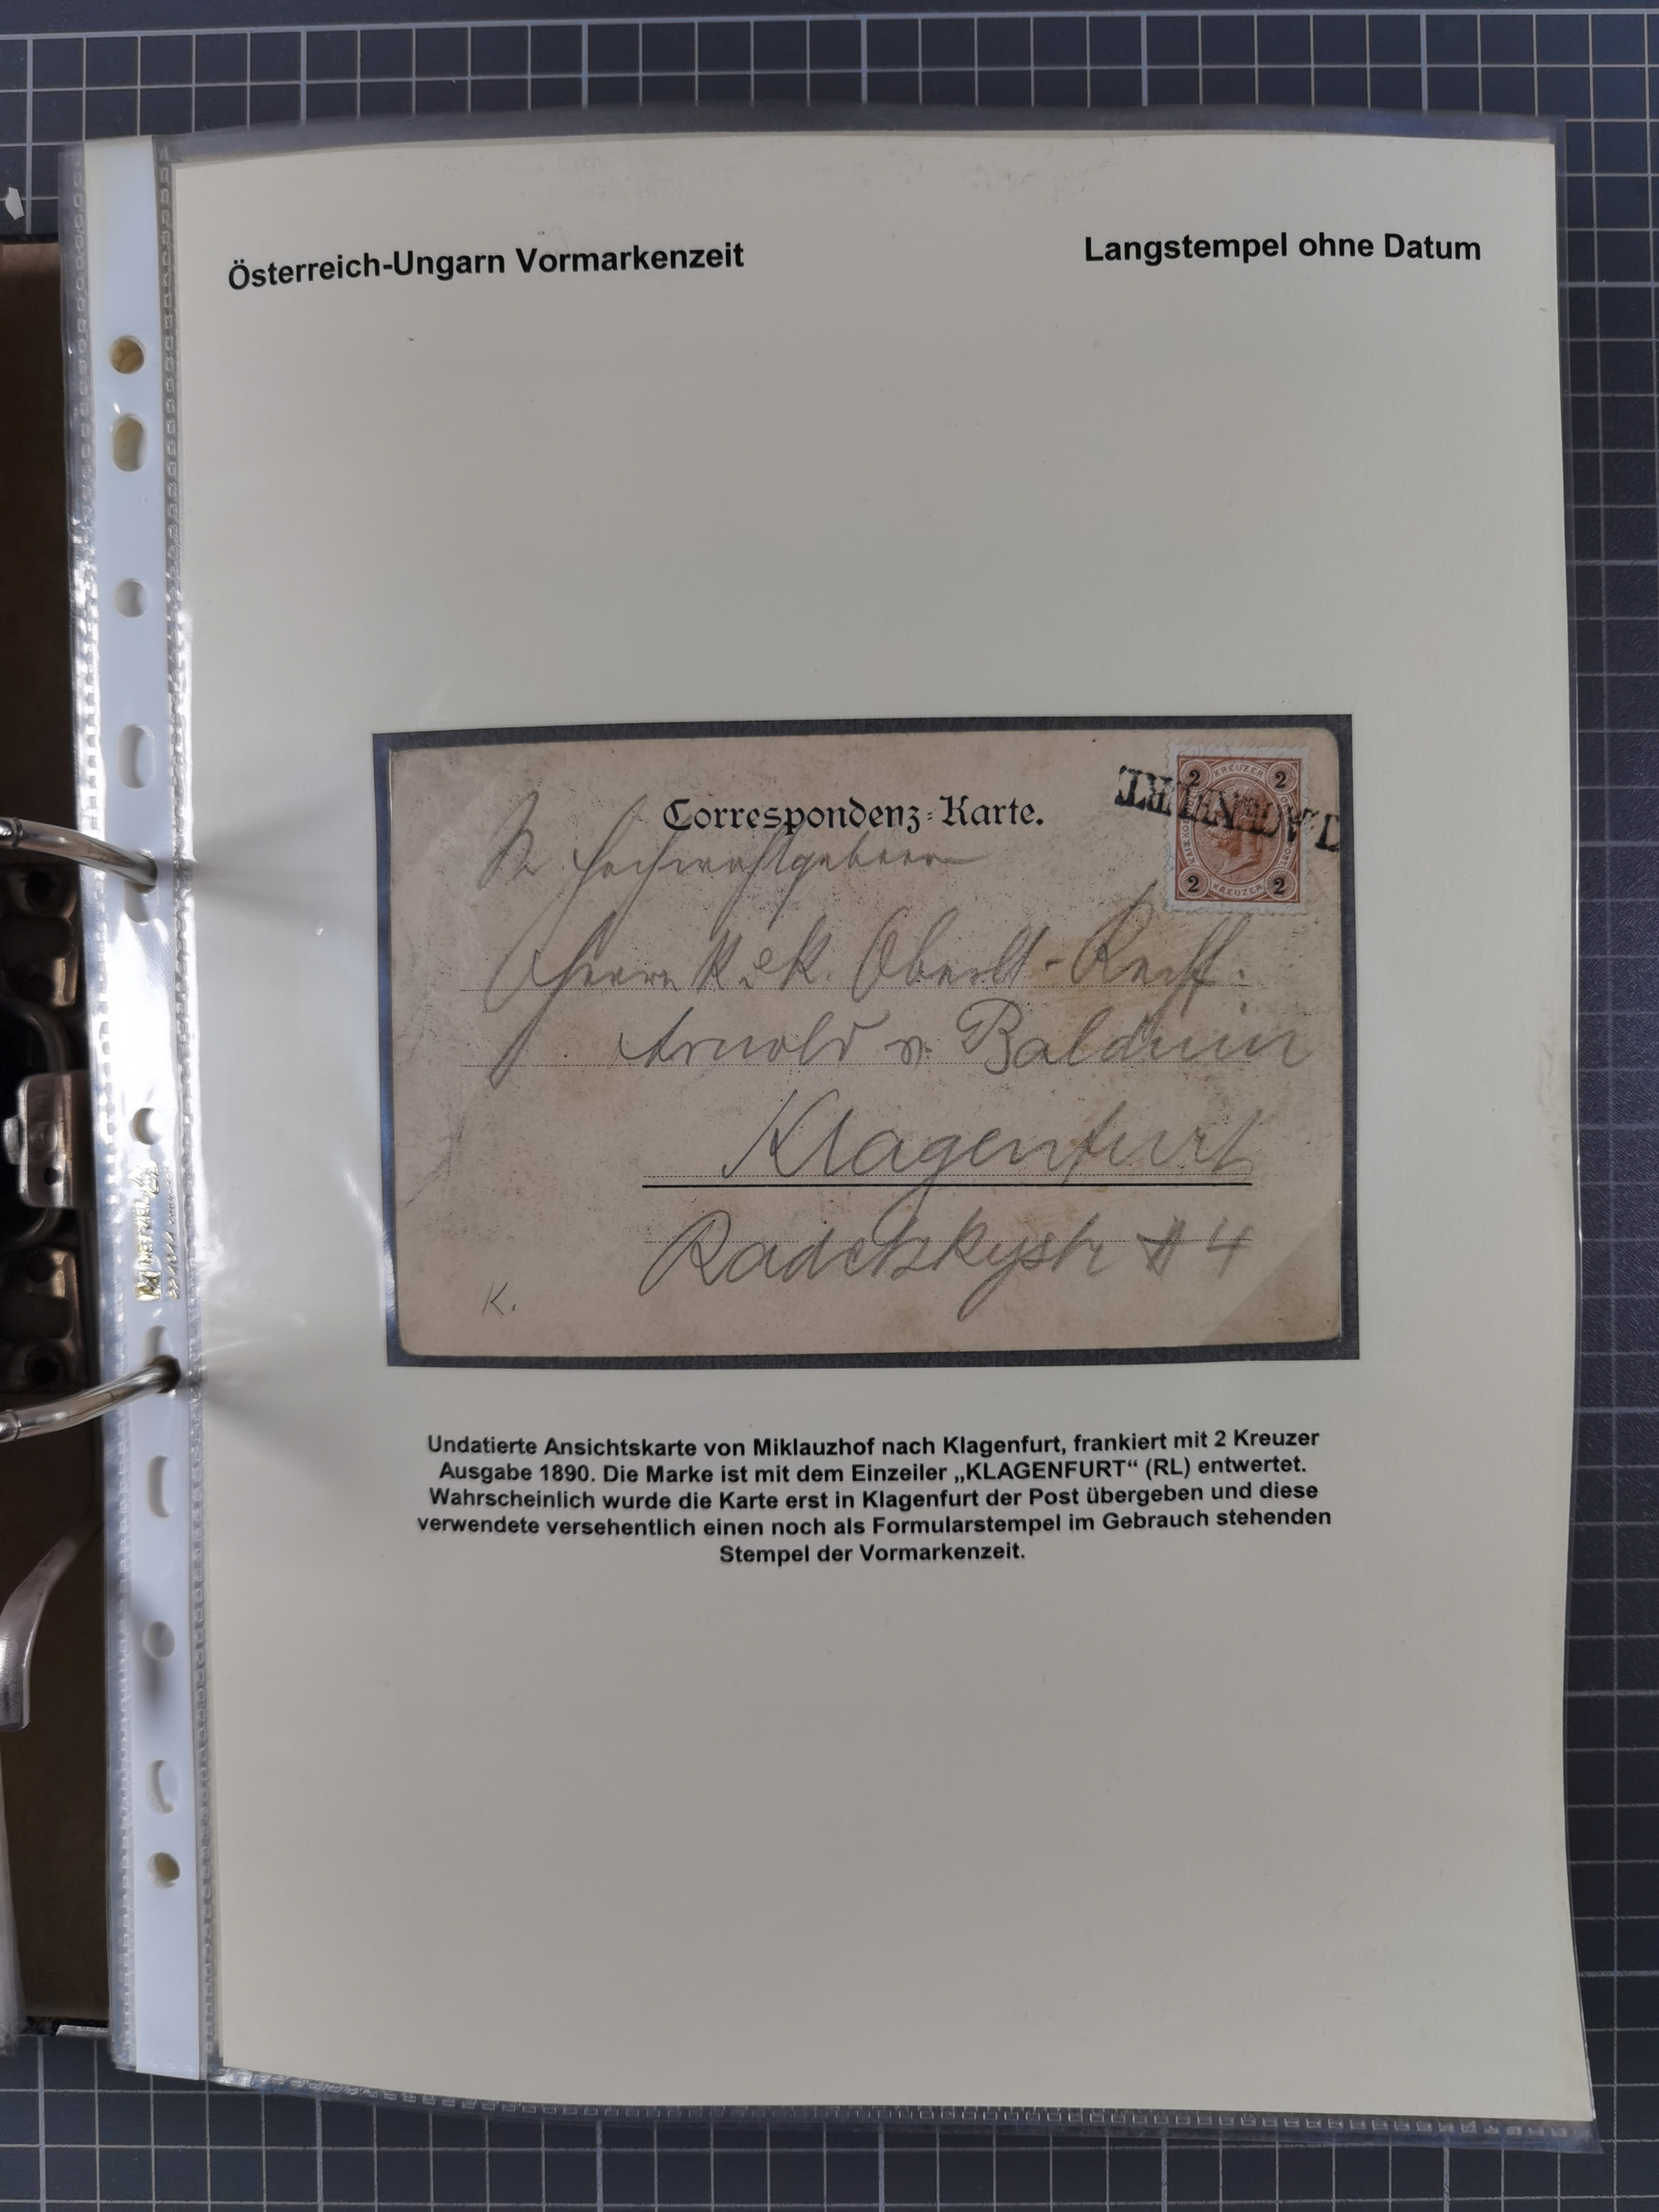 Österreich-Ungarn Vormarkenzeit
Langstempel ohne Datum
Correspondenz-Karte.
2 KREUZER 2
2 KREUZER 2
Hochwohlgeboren
Herrn K. u. K. Oberlt-
Arnold v. Balduin
Klagenfurt
Radetzkystr # 4
K.
Undatierte Ansichtskarte von Miklauzhof nach Klagenfurt, frankiert mit 2 Kreuzer
Ausgabe 1890. Die Marke ist mit dem Einzeiler „KLAGENFURT“ (RL) entwertet.
Wahrscheinlich wurde die Karte erst in Klagenfurt der Post übergeben und diese
verwendete versehentlich einen noch als Formularstempel im Gebrauch stehenden
Stempel der Vormarkenzeit.